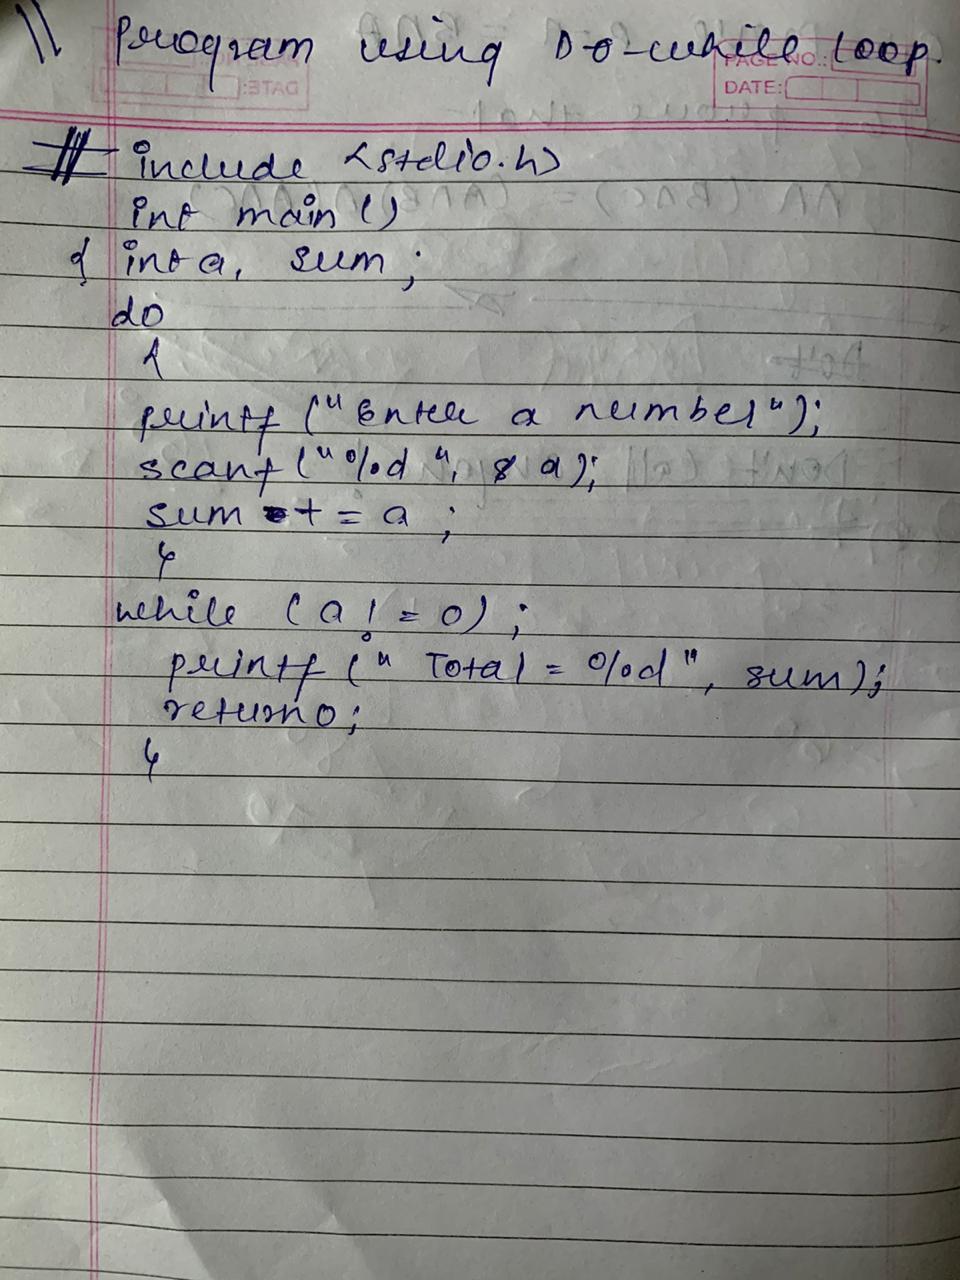 // Program using Do-while loop.
PAGE NO.:
DATE:
# include <stdio.h>
int main ()
{ int a, sum;
do
{
printf ("Enter a number");
scanf ("%d", & a);
sum += a ;
}
while (a != 0) ;
printf (" Total = %d", sum);
return 0;
}